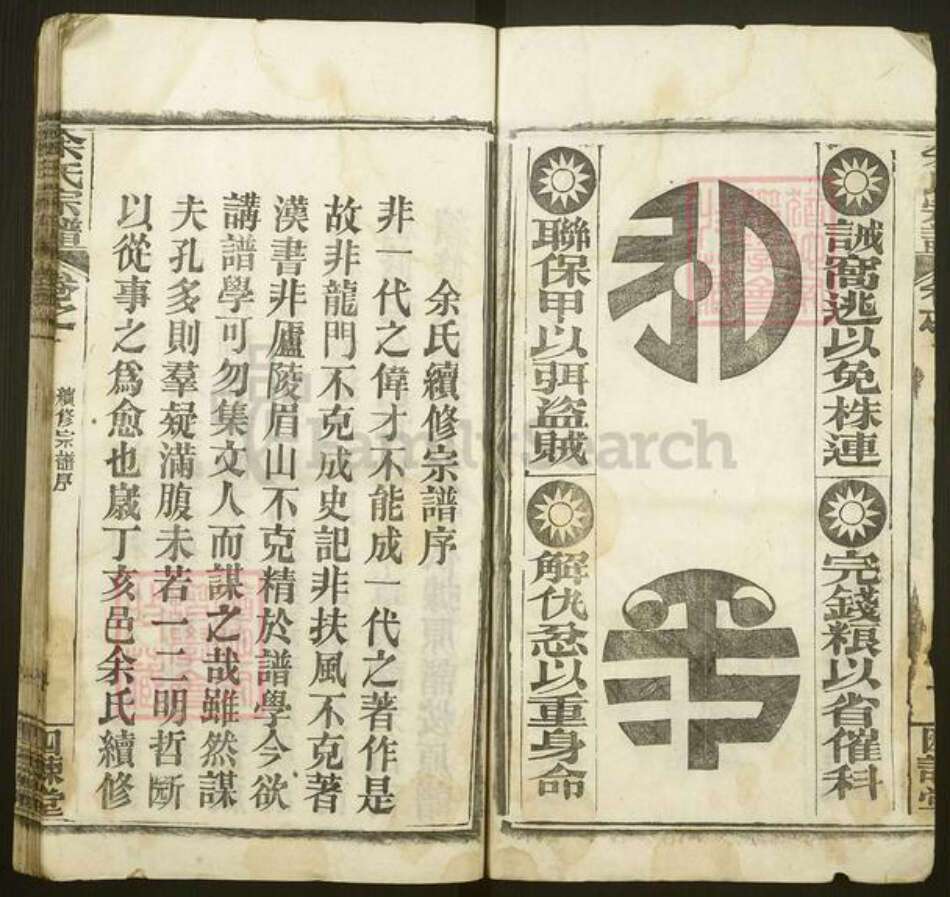 誡窩逃以免株連
完錢粮以省催科
和平
聯保甲以弭盜賊
解仇忿以重身命
余氏續修宗譜序
非一代之偉才不能成一代之著作是
故非龍門不克成史記非扶風不克著
漢書非廬陵眉山不克精於譜學今欲
講譜學可勿集文人而謀之哉雖然謀
夫孔多則羣疑滿腹未若一二明哲斷
以從事之爲愈也嵗丁亥邑余氏續修
余氏宗譜
卷之一
續修宗譜序
四諫堂
FamilySearch